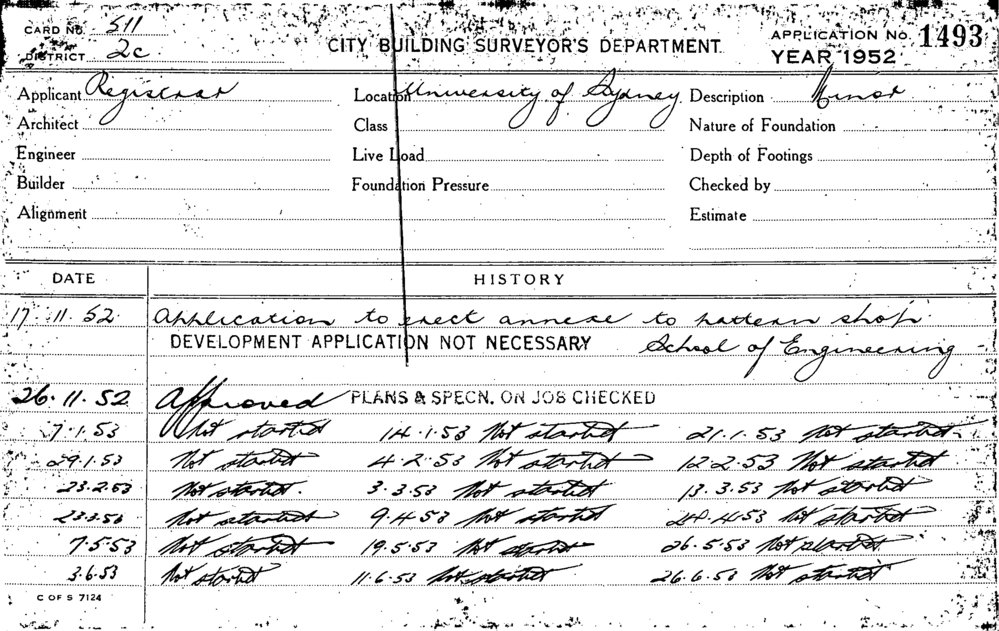 CARD No. 511
DISTRICT 2c
CITY BUILDING SURVEYOR'S DEPARTMENT
APPLICATION No. 1493
YEAR 1952
Applicant Registrar Location University of Sydney Description Minor
Architect Class Nature of Foundation
Engineer Live Load Depth of Footings
Builder Foundation Pressure Checked by
Alignment Estimate
DATE HISTORY
17.11.52 Application to erect annexe to pattern shop
DEVELOPMENT APPLICATION NOT NECESSARY School of Engineering
26.11.52 Approved PLANS & SPECN. ON JOB CHECKED
7.1.53 Not started 14.1.53 Not started 21.1.53 Not started
29.1.53 Not started 4.2.53 Not started 12.2.53 Not started
23.2.53 Not started. 3.3.53 Not started 13.3.53 Not started
23.3.53 Not started 9.4.53 Not started 24.4.53 Not started
7.5.53 Not started 19.5.53 Not started 26.5.53 Not started
3.6.53 Not started 11.6.53 Not started 26.6.53 Not started
C OF S 7124